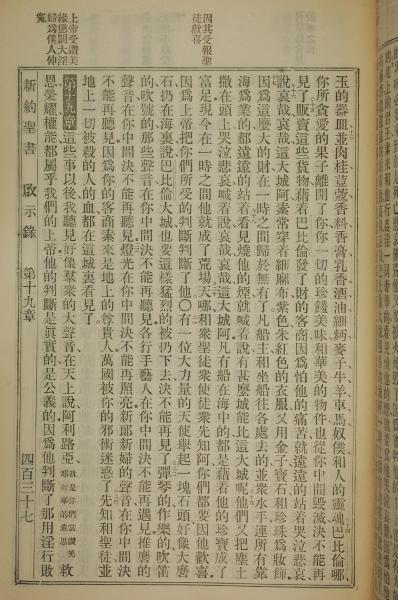 因其受報聖
徒歡喜
上帝受讚美
緣懲罰大淫
婦爲僕人伸
冤
玉的器皿並肉桂荳蔻香料香膏乳香酒油細麪麥子牛羊車馬奴僕和人的靈魂巴比倫哪
你所貪愛的果子離開了你你一切的珍饈美味和華美的物件也從你中間毀滅決不能再
見了販賣這些貨物藉着巴比倫發了財的客商因爲怕他的痛苦就遠遠的站着哭泣悲哀
說哀哉哀哉這大城阿素常穿着細麻布紫色朱紅色的衣服又用金子寶石和珍珠爲妝飾
這麼大的財在一時之間歸於無有了凡船主和坐船往各處去的並衆水手連所有靠
海爲業的都遠遠的站着看見燒他的煙就喊着說有甚麼城能比這大城呢他們又把塵土
撒在頭上哭泣悲哀喊着說哀哉哀哉這大城阿凡有船在海中的都是藉着他的珍寶成了
富足現今在一時之間他就成了荒場天哪和衆聖徒衆使徒衆先知阿你們都要因他歡喜
因爲上帝把你們所受的判斷判斷了他〇有一位大力量的天使舉起一塊石頭好像大磨
石扔在海裏說巴比倫大城也要這樣猛烈的被扔下去決不能再見了彈琴的作樂的吹簫
的吹號的那些聲音在你中間決不能再聽見各行手藝人在你中間決不能再遇見推磨的
聲音在你中間決不能再聽見燈光在你中間決不能再照亮新郎新婦的聲音在你中間決
不能再聽見因爲你的客商素來是地上的尊貴人萬國被你的邪術迷惑了先知和聖徒並
地上一切被殺的人的血都在這城裏看見了
第十九章 這些事以後我聽見好像羣衆的大聲音在天上說阿利路亞 就是你們當讚美耶和華的意思 救
恩榮耀權能都屬乎我們的上帝他的判斷是眞實的是公義的因爲他判斷了那用淫行敗
新約聖書 啟示錄 第十九章 四百三十七